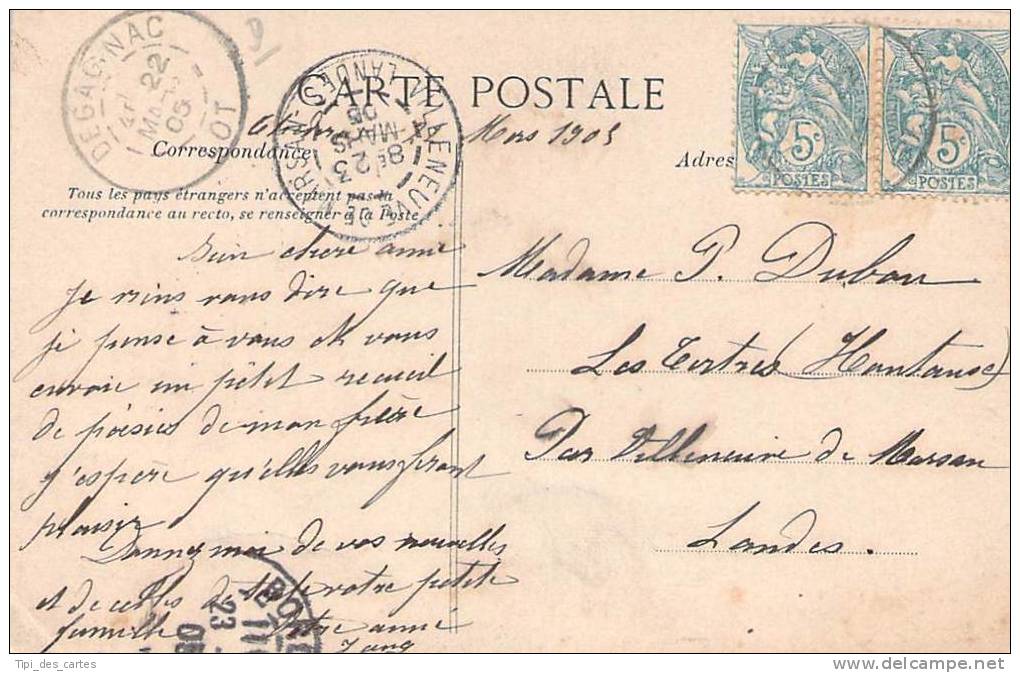 DEGAGNAC
22
MARS
05
LOT
CARTE POSTALE
VILLENEUVE DE MARSAN
LANDES
8E 23
MARS
05
5c
POSTES
5c
POSTES
Mars 1905
Correspondance
Adres
Tous les pays étrangers n'acceptent pas la
correspondance au recto, se renseigner à la Poste
Bien chère amie
Je viens vous dire que
je pense à vous et vous
envoie un petit recueil
de poésies de mon frère
j'espère qu'elles vous feront
plaisir
Donnez moi de vos nouvelles
et de celles de toute votre petite
famille Votre amie
Madame P. Dubau
Les Tertres (Hontanse)
Par Villeneuve de Marsan
Landes.
BORD
23
05
Tipi_des_cartes
www.delcampe.net